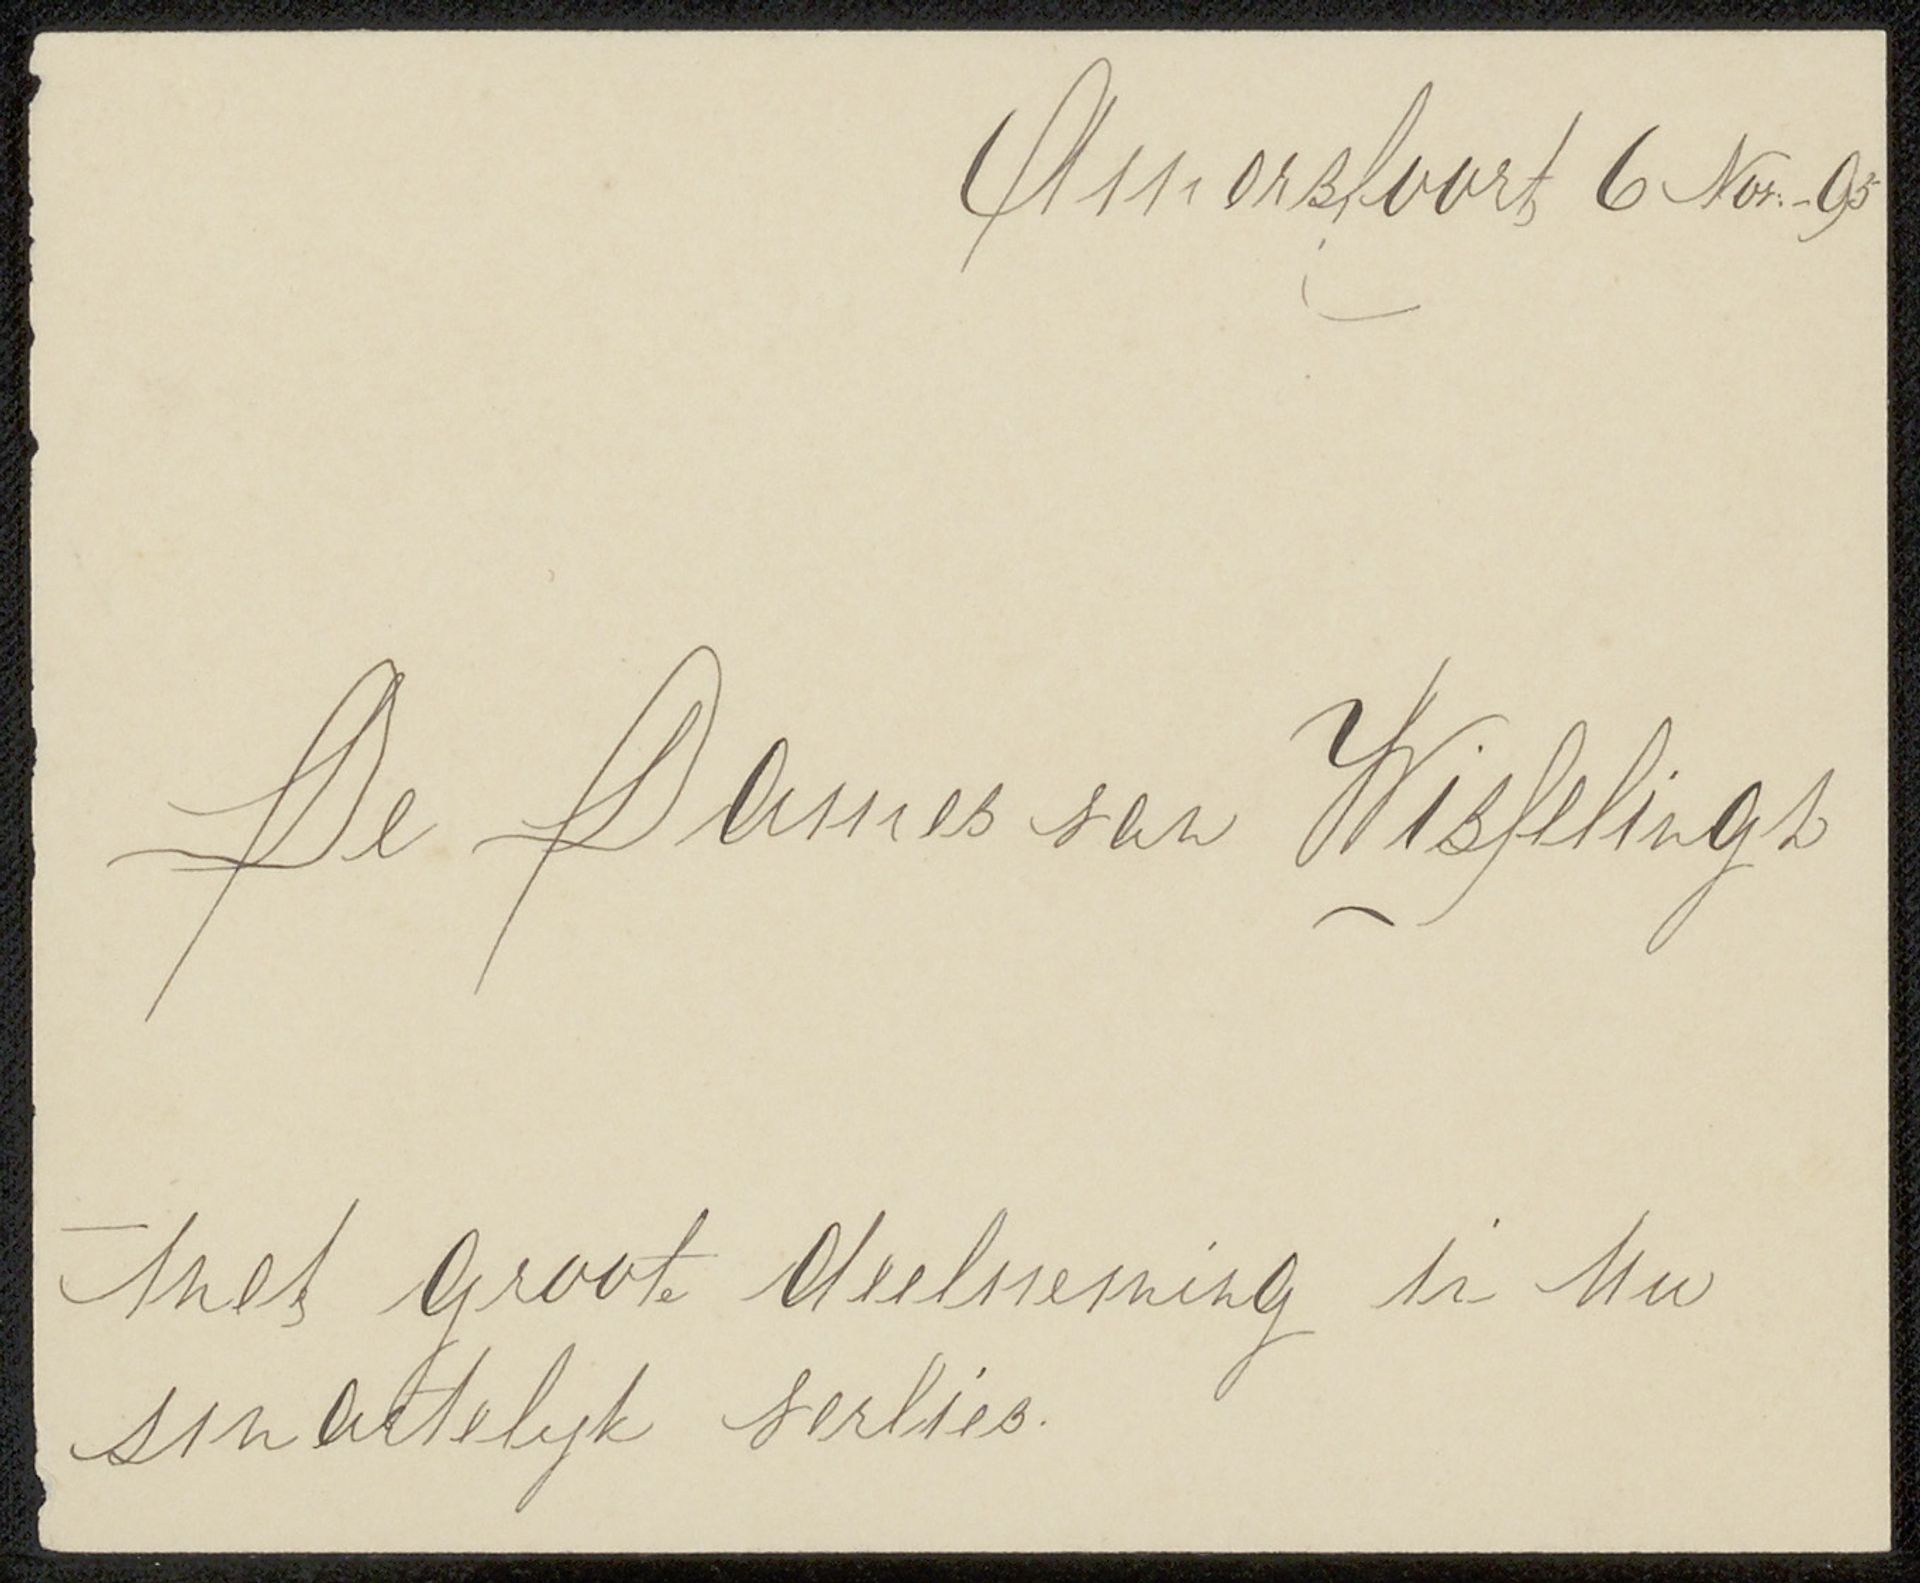 Amersfoort 6 Nov. -95
De Dames van Wisselingh
met groote deelneming in Uw
smartelyk verlies.